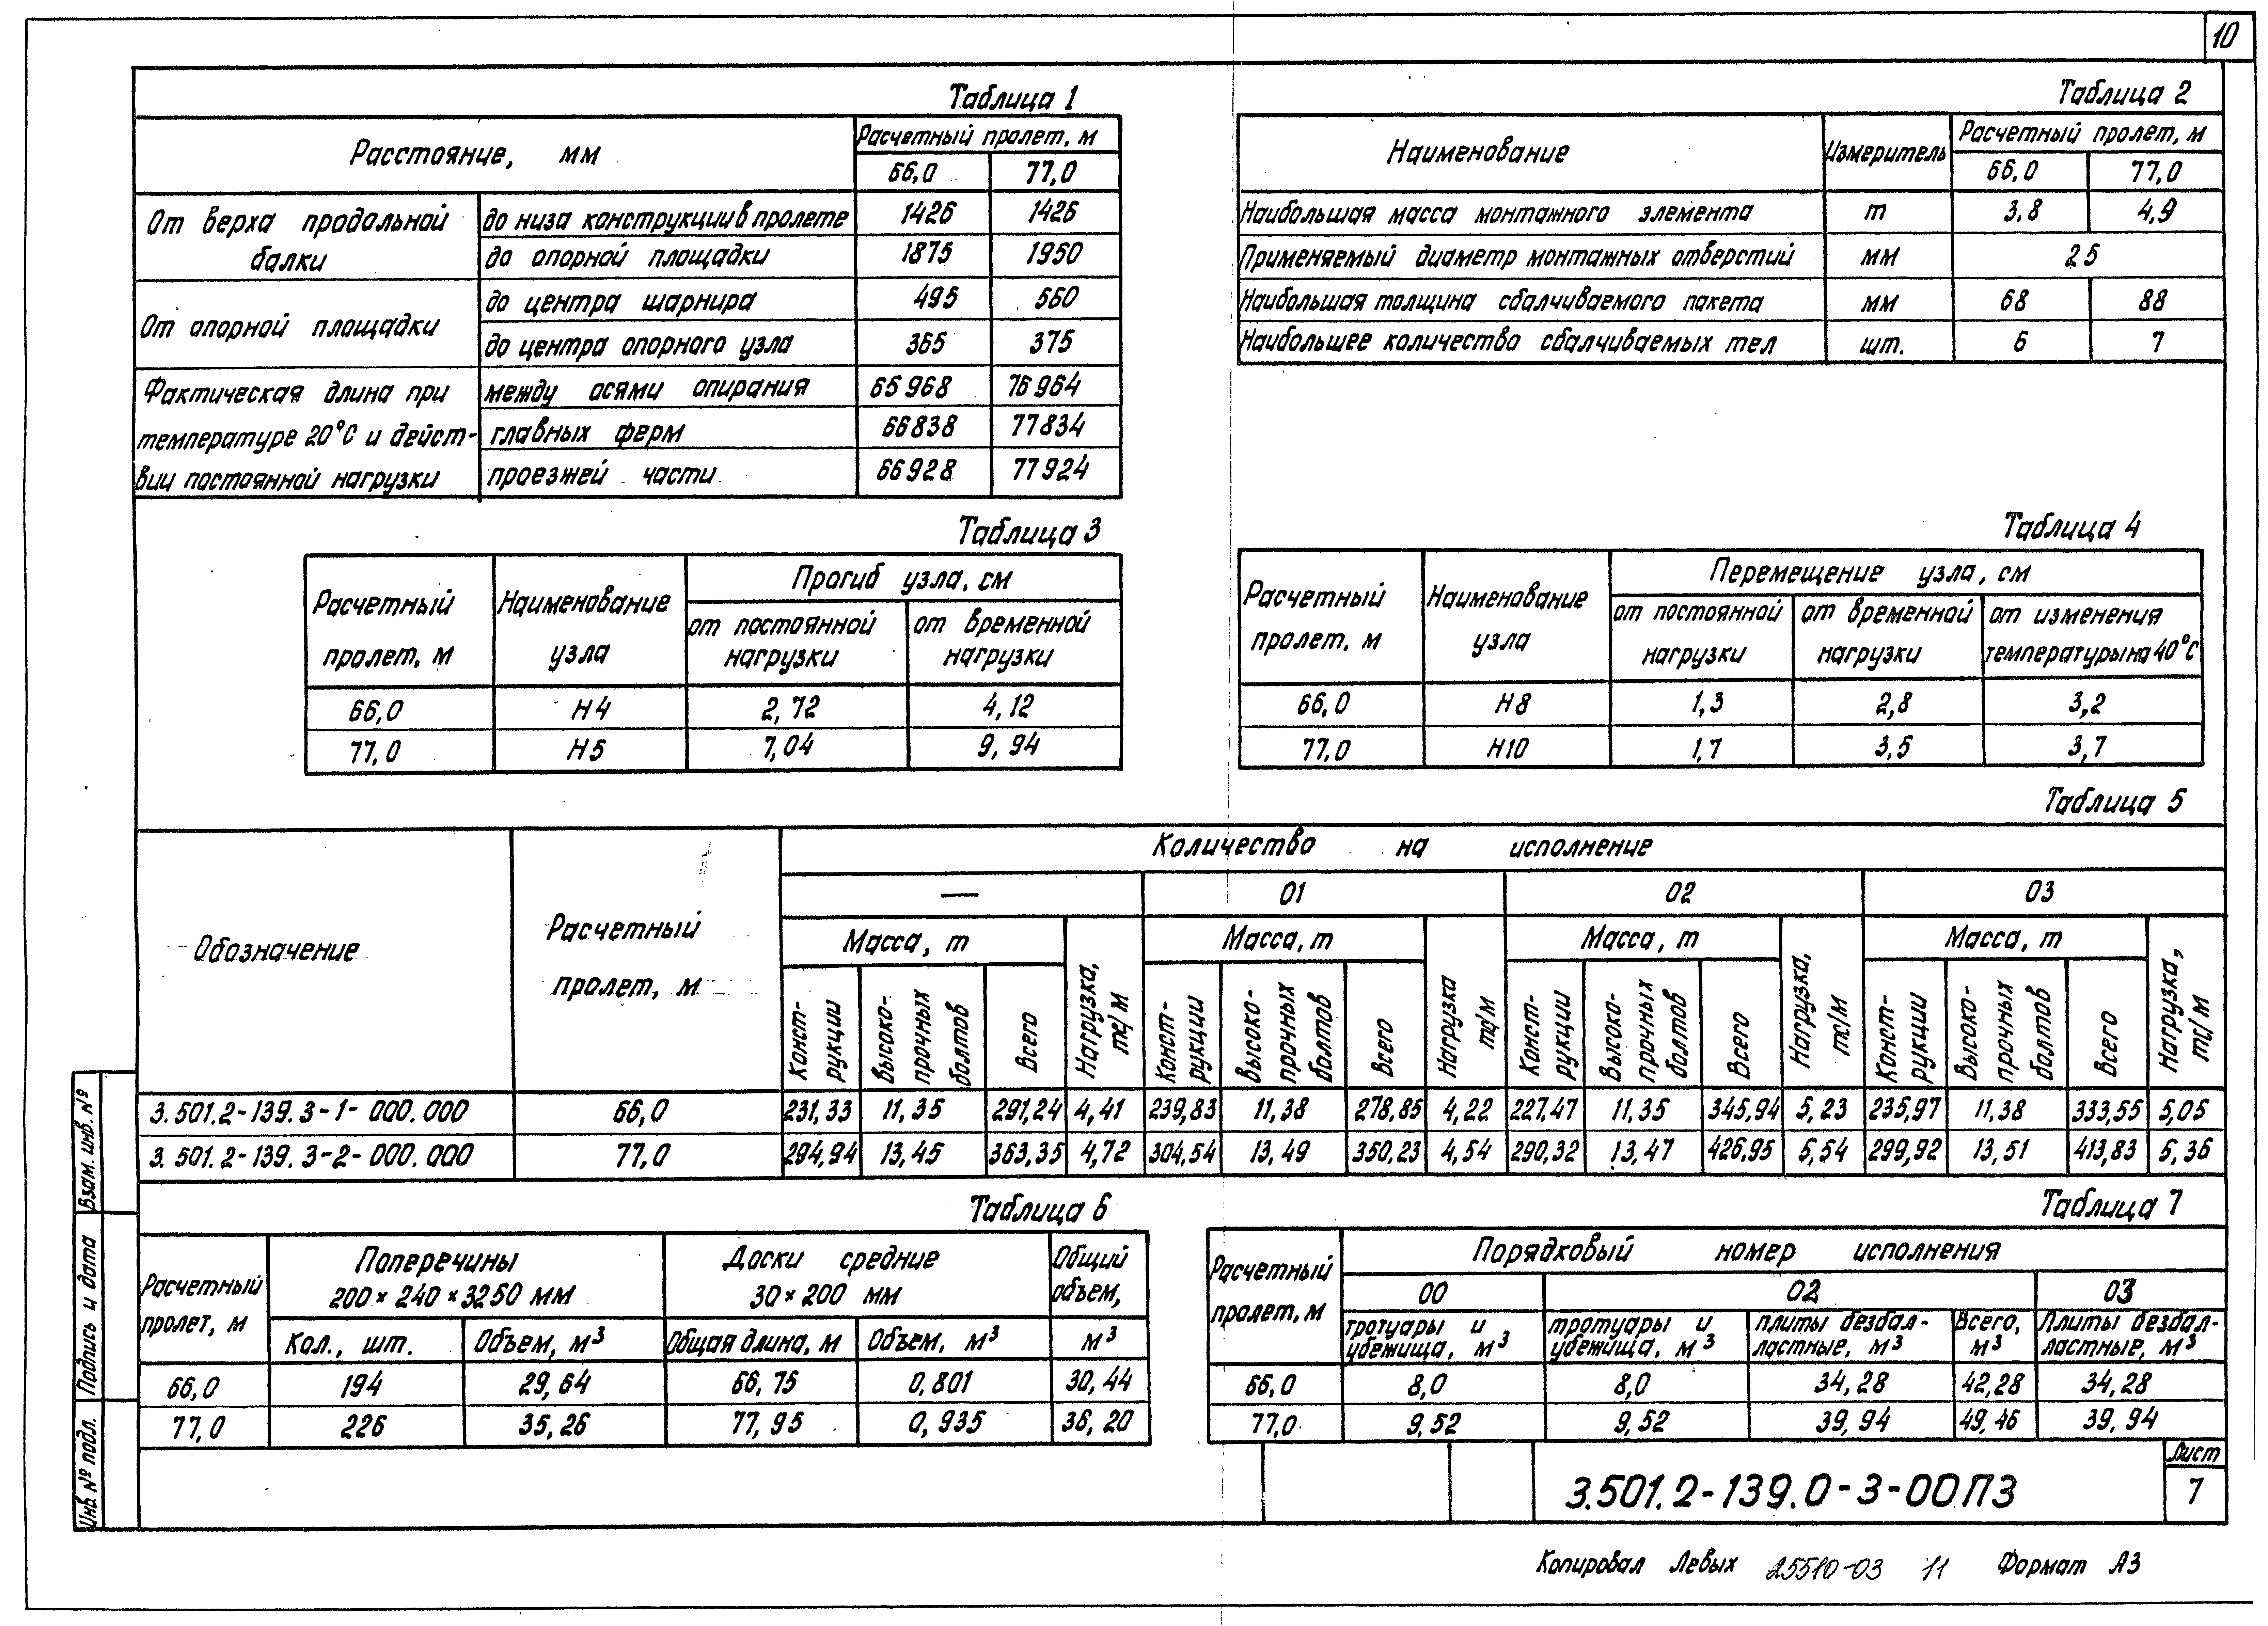 10
Таблица 1
Расстояние, мм
Расчетный пролет, м
66,0 77,0
От верха продольной балки
до низа конструкции в пролете 1426 1426
до опорной площадки 1875 1950
От опорной площадки
до центра шарнира 495 560
до центра опорного узла 365 375
Фактическая длина при температуре 20°С и дейст-
вии постоянной нагрузки
между осями опирания 65968 76964
главных ферм 66838 77834
проезжей части 66928 77924
Таблица 2
Наименование Измеритель Расчетный пролет, м
66,0 77,0
Наибольшая масса монтажного элемента т 3,8 4,9
Применяемый диаметр монтажных отверстий мм 25
Наибольшая толщина сбалчиваемого пакета мм 68 88
Наибольшее количество сбалчиваемых тел шт. 6 7
Таблица 3
Расчетный пролет, м
Наименование узла
Прогиб узла, см
от постоянной нагрузки
от временной нагрузки
66,0 Н4 2,72 4,12
77,0 Н5 7,04 9,94
Таблица 4
Расчетный пролет, м
Наименование узла
Перемещение узла, см
от постоянной нагрузки
от временной нагрузки
от изменения температуры на 40°С
66,0 Н8 1,3 2,8 3,2
77,0 Н10 1,7 3,5 3,7
Таблица 5
Обозначение
Расчетный пролет, м
Количество на исполнение
— 01 02 03
Масса, т Масса, т Масса, т Масса, т
Конст-рукции Высоко-прочных болтов Всего Нагрузка, тс/м
Конст-рукции Высоко-прочных болтов Всего Нагрузка тс/м
Конст-рукции Высоко-прочных болтов Всего Нагрузка, тс/м
Конст-рукции Высоко-прочных болтов Всего Нагрузка, тс/м
3.501.2-139.3-1-000.000 66,0 231,33 11,35 291,24 4,41 239,83 11,38 278,85 4,22 227,47 11,35 345,94 5,23 235,97 11,38 333,55 5,05
3.501.2-139.3-2-000.000 77,0 294,94 13,45 363,35 4,72 304,54 13,49 350,23 4,54 290,32 13,47 426,95 5,54 299,92 13,51 413,83 5,36
Таблица 6
Расчетный пролет, м
Поперечины 200×240×3250 мм
Доски средние 30×200 мм
Общий объем, м³
Кол., шт. Объем, м³ Общая длина, м Объем, м³
66,0 194 29,64 66,75 0,801 30,44
77,0 226 35,26 77,95 0,935 36,20
Таблица 7
Расчетный пролет, м
Порядковый номер исполнения
00 02 03
тротуары и убежища, м³
тротуары и убежища, м³
плиты безбал-ластные, м³
Всего, м³
Плиты безбал-ластные, м³
66,0 8,0 8,0 34,28 42,28 34,28
77,0 9,52 9,52 39,94 49,46 39,94
Взам. инв. №
Подпись и дата
Инв. № подл.
3.501.2-139.0-3-00ПЗ
Лист
7
Копировал Левых 25510-03 11 Формат А3